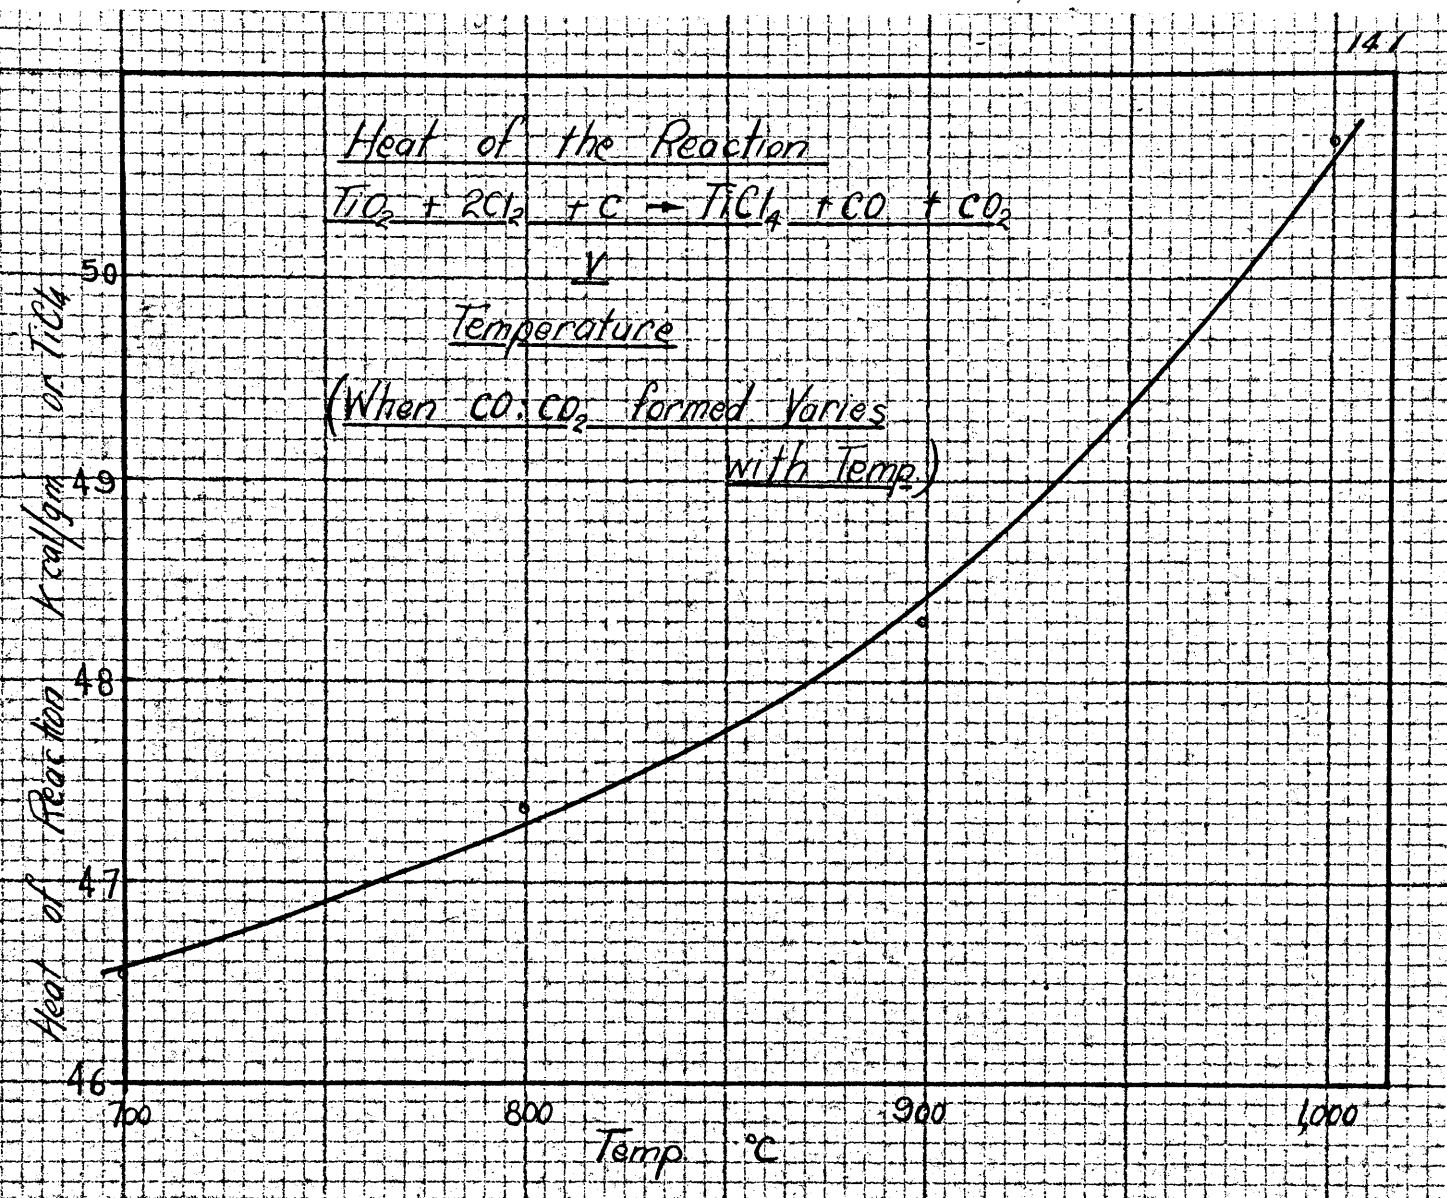 141
Heat of the Reaction
TiO₂ + 2Cl₂ + C → TiCl₄ + CO + CO₂
V
Temperature
(When CO:CO₂ formed Varies
with Temp.)
Heat of Reaction Kcal/gm or TiCl₄
50
49
48
47
46
700 800 900 1,000
Temp °C